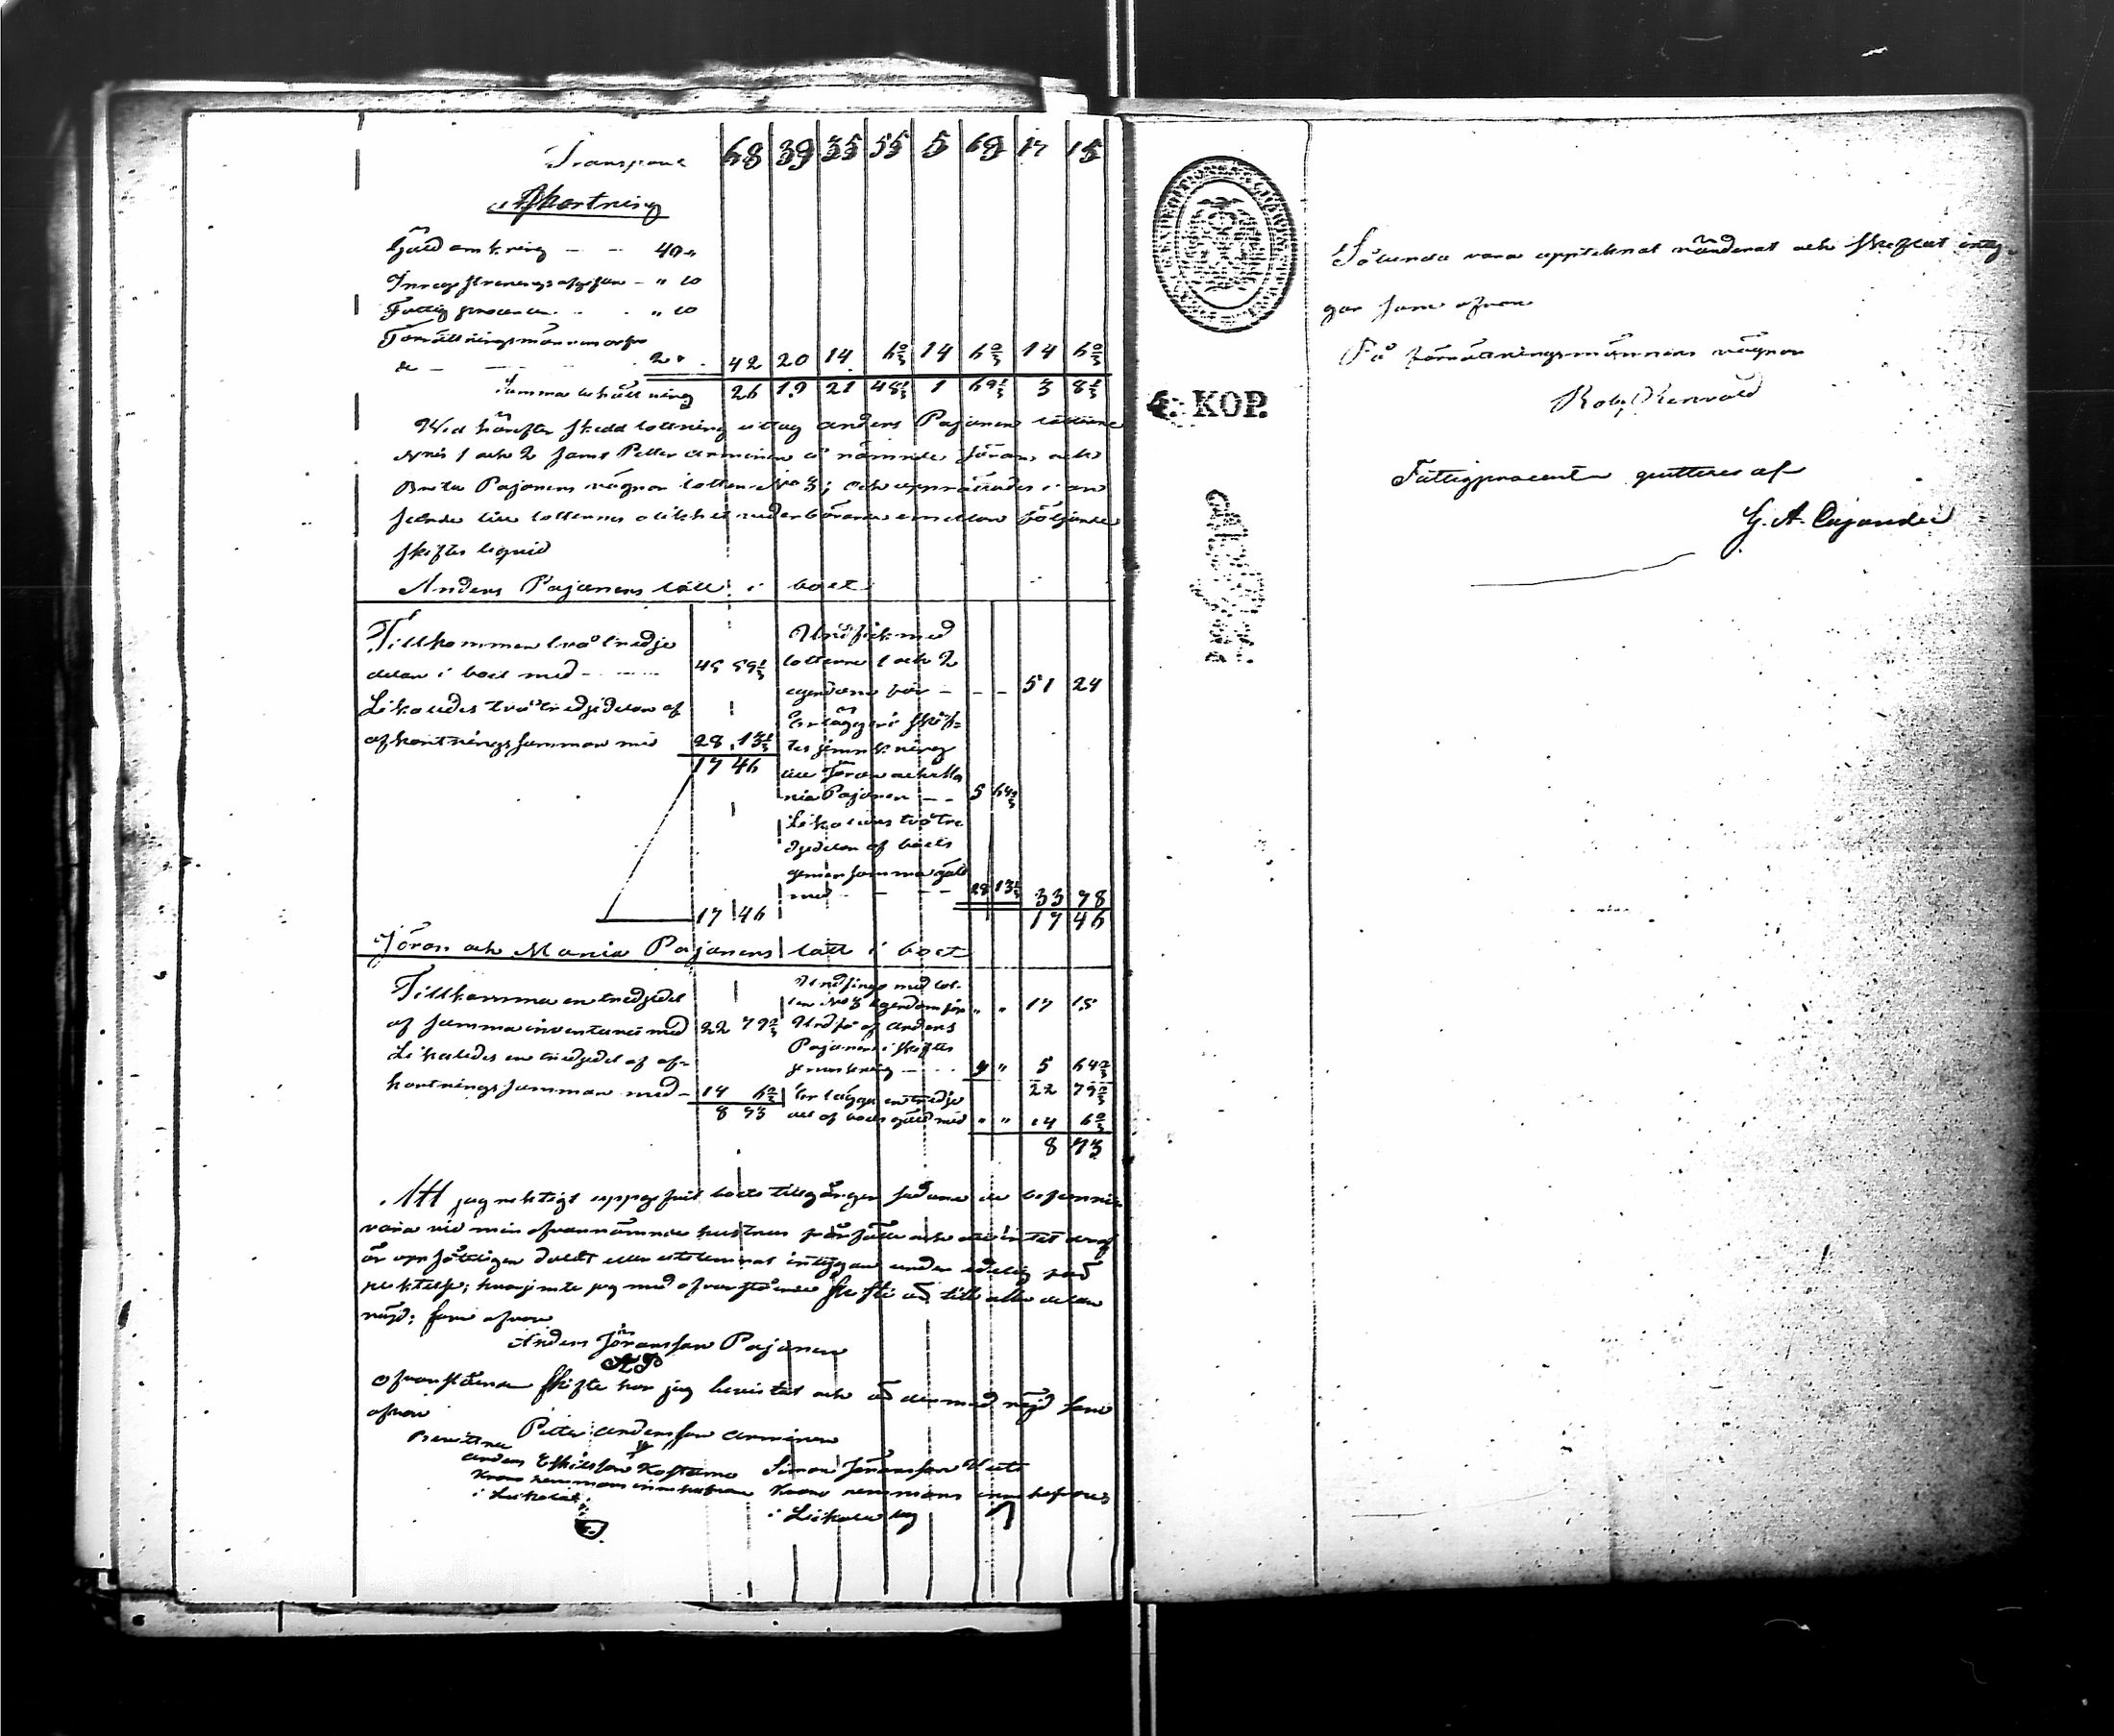 Transport 68 39 35 55 5 68 17 15
Afkortning
Gäld omkring — — 40 "
Inregistreringsafgiften — " 10
Fattig procenten . . . " 10
Förrättningsmännens arfvo
de — — 2 " . 42 20 14 6 2/3 14 6 2/3 14 6 2/3
Summa behållning 26 19 21 48 1/3 1 3 8 1/3
Wid härefter skedd lottning uttog Anders Pajanen lotterne
N:ris 1 och 2 samt Petter Arminen å nämnde Jörans och
Pajanens vägnar lotten N:o 3; och upprättades i an
seende till lotternes olikhet nedanförande emellan följande
skiftes liquid
Anders Pajanens lott i boet
Tillkommer två tredje
delar i boet med — — 45 59 1/3
Likaledes två tredjedelar af
afkortnings summan med 28 13 1/3
17 46
17 46
Undfick med
lotterne 1 och 2
egendom för — — — 51 24
Erlägger i skif-
tes jemkning
till Jöran och Ma
ria Pajanen — — 5 64 2/3
Likaledes två tre
djedelar af boets
gemensamma gäld
med — — — 28 13 1/3 33 78
17 46
Jöran och Maria Pajanens lott i boet
Tillkomma en tredjedel
af summa inventarie med 22 79 2/3
Likaledes en tredjedel af af-
kortnings summan med — 14 6 2/3
8 73
Undfingo med lot-
ten N:o 3 egendom för " " 17 15
Undfå af Anders
Pajanen i skiftes
jemkning — — " " 5 64 2/3
22 79 2/3
Erlägga en tredje
del af boets gäld med " " 14 6 2/3
8 73
Att jag riktigt uppgifvit boets tillgångar sådane de befunnits
vara vid min ofvannämnde hustrus frånfälle och att intet deraf
är uppsåtligen doldt eller uteslemnat intygar under edelig för
pliktelse; hvarjemte jag med ofvanstående skifte är till alla delar
nöjd; som ofvan
Anders Jöransson Pajanen
AP
Ofvanstående skifte har jag bevistat och är dermed nöjd som
ofvan
Petter Andersson Arminen
Bevittna
Anders Eskilsson Kostamo Simon Jöransson
Krono hemmans innehafvare Krono hemmans innehafvare
i i by
4: KOP.
Sålunda vara upptecknat värderat och skiftat inty-
gar som ofvan
På förrättningsmännens vägnar
Rob. Renvald
Fattigprocenten qvitteras af
G. A. Cajander